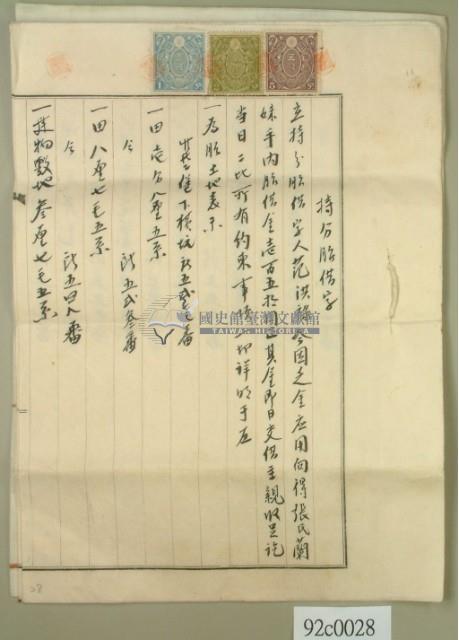 持分胎借字
立持分胎借字人范洪祿今因乏金应用向得張氏蘭
妹手內胎借金壱百五拾圓正其金即日交借主親收足訖
当日二比所有約束事項一切詳明于左
一為胎土地表示
庄下橫坑
一田壱分八厘五糸
仝 弐参番
一田八厘七毛五糸
仝 五四八番
一建物敷地参厘七毛五糸
國史館臺灣文獻館
TAIWAN HISTORICA
92c0028